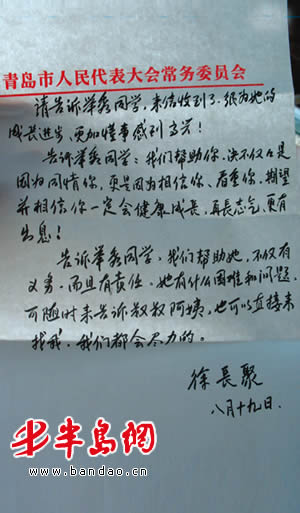 青岛市人民代表大会常务委员会
请告诉举秀同学,来信收到了,很为她的
成长进步、更加懂事感到高兴!
告诉举秀同学:我们帮助你,决不仅是
因为同情你,更是因为相信你、看重你,期望
并相信你一定会健康成长,再长志气,更有
出息!
告诉举秀同学,我们帮助她,不仅有
义务,而且有责任。她有什么困难和问题,
可随时来告诉叔叔阿姨,也可以直接来
找我,我们都会尽力的。
徐长聚
八月十九日.
半岛網
www.bandao.cn